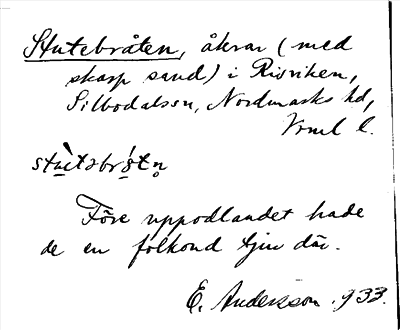 Stutebråten, åkrar (med
skarp sand) i Risviken,
Silbodalssn, Nordmarks hd,
Vrml l.
Före uppodlandet hade
de en folkond tjur där.
E. Andersson 1933.